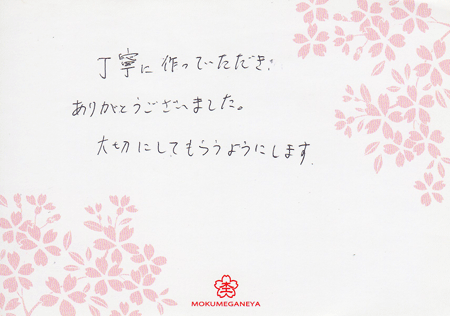 丁寧に作っていただき、
ありがとうございました。
大切にしてもらうようにします
杢
MOKUMEGANEYA